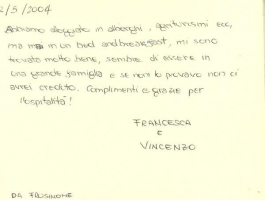 2/5/2004
Abbiamo alloggiato in alberghi, agriturismi ecc,
ma mai in un bed and breakfast, mi sono
trovata molto bene, sembra di essere in
una grande famiglia e se non lo provavo non ci
avrei creduto. Complimenti e grazie per
l'ospitalità!
FRANCESCA
e
VINCENZO
DA FROSINONE